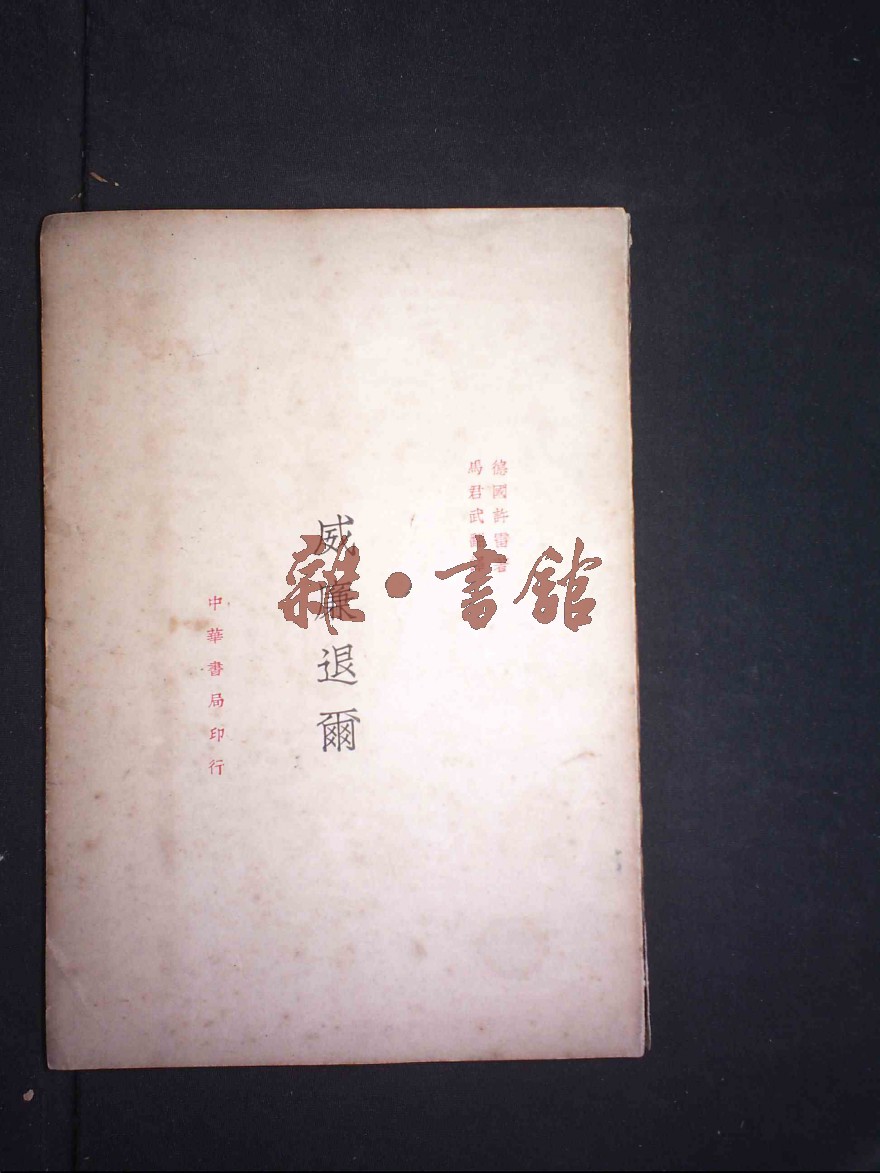 德國許雷著
馬君武譯
威廉退爾
中華書局印行
雜·書館